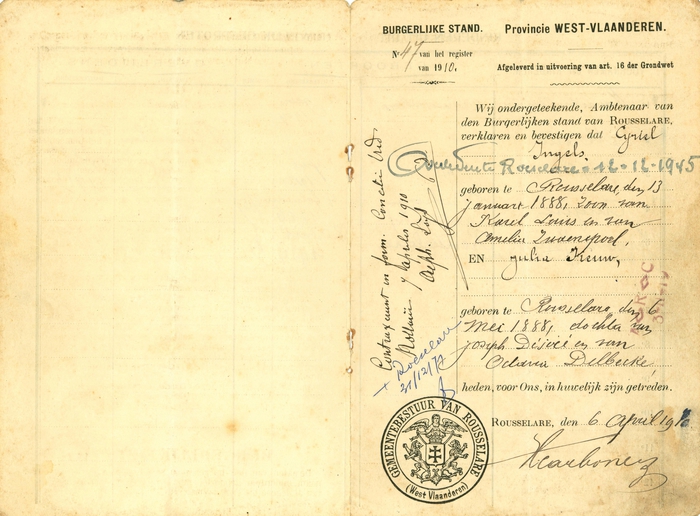 BURGERLIJKE STAND.
Provincie WEST-VLAANDEREN.
N° 47 van het register
van 1910.
Afgeleverd in uitvoering van art. 16 der Grondwet
Wij ondergeteekende, Ambtenaar van
den Burgerlijken stand van ROUSSELARE,
verklaren en bevestigen dat Cyriel
Ingels.
Overleden te Roeselare 12-12-1945
geboren te Rousselare, den 13
januari 1888, zoon van
Karel Louis en van
Amelia
EN Julia
geboren te Rousselare, den 6
Mei 1888, dochter van
Joseph Désiré en van
Octavia Delbecke,
heden, voor Ons, in huwelijk zijn getreden.
ROUSSELARE, den 6 April 1910
in form.
7 aprilis 1910
+ Roeselare
21/12/77
GEMEENTEBESTUUR VAN ROUSSELARE
(West Vlaanderen)